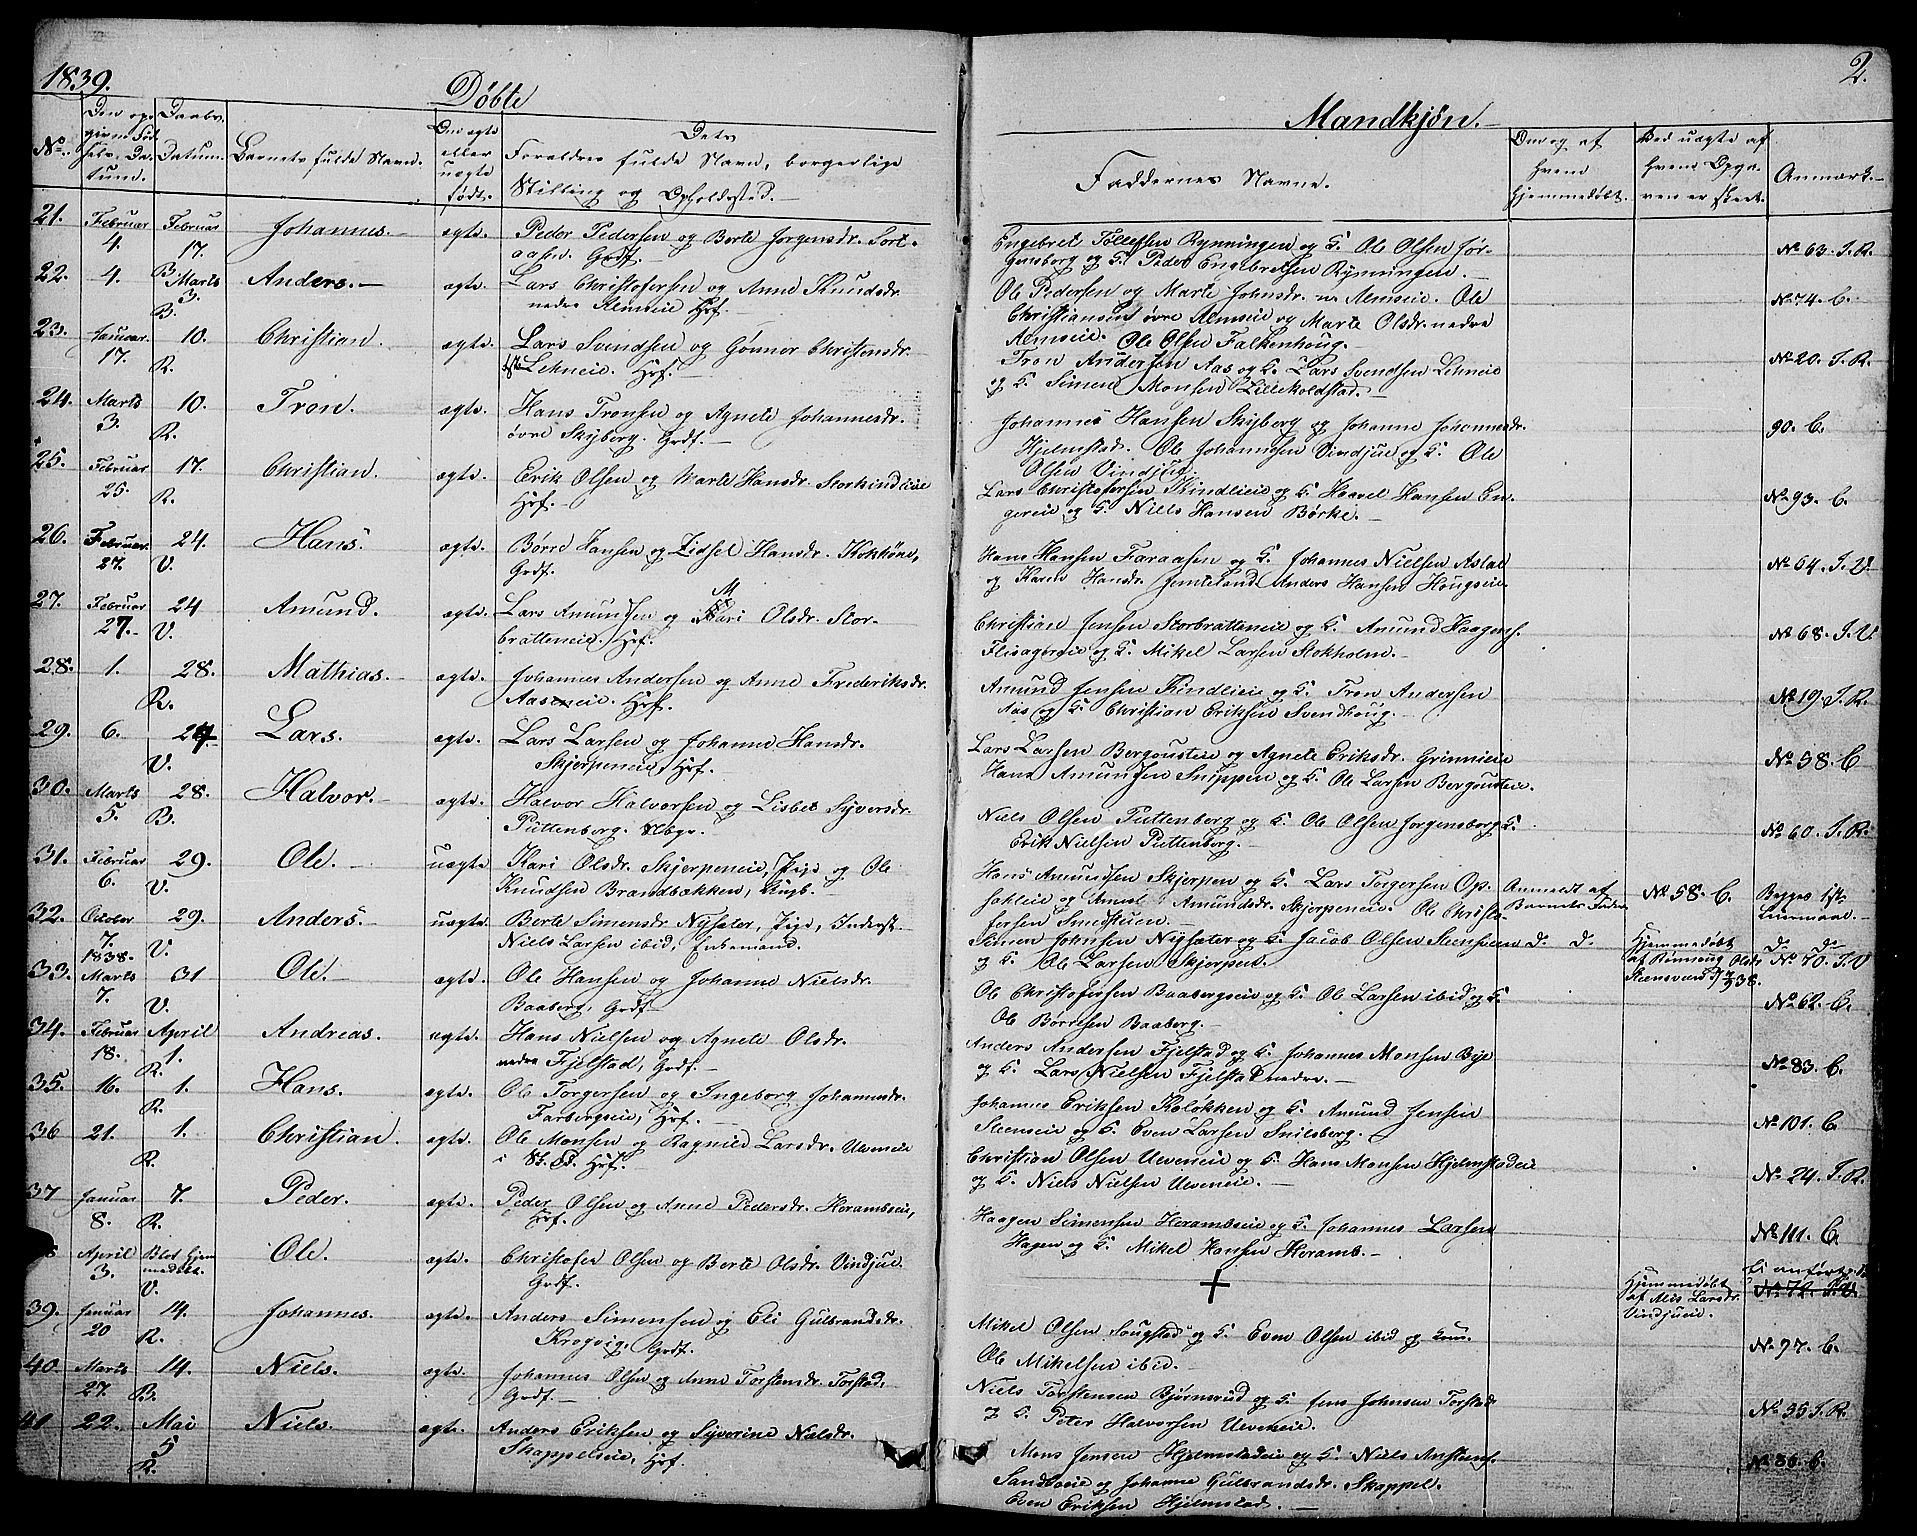 1839.
Døbte
Mandkjøn.
2.
No.
Den op-
given Fød-
sels-Da-
tum.
Daabs-
Datum.
Barnets fulde Navn.
Om ægte
eller
uægte
født.
Dets
Forældres fulde Navn, borgerlige
Stilling og Opholdssted.
Faddernes Navne.
Om og af
hvem
hjemmedøbt.
Ved uægte af
hvem Opga-
ven er skeet.
Anmærk.
21. Februar 4. Februar 17. B. Johannes. ægte. Peder Pedersen og Berte Jørgensdr.
Grdf.
Engebret Tollefsen Rynningen og G. Ole Olsen Jør-
gensborg og G. Peder Engebretsen Rynningen.
No 63. I. R.
22. 4. Marts 3. B. Anders. ægte. Lars Christofersen og Anne Knudsdr.
nedre Almeie Hrf.
Ole Pedersen og Marte Johnsdr. n. Almeie. Ole
Christiansen øvre Almeie og Marte Olsdr. nedre
Almeie. Ole Olsen Falkenhoug.
No 74. C.
23. Januar 17. 10. R. Christian. ægte. Lars Svendsen og Gønner Christensdr.
Lehneie. Hrf.
Tron Andersen Aas og G. Lars Svendsen Lehneie
og G. Simen Monsen Lillekoldstad.
No 20. I. R.
24. Marts 3. 10. R. Tron. ægte. Hans Tronsen og Agnete Johannesdr.
øvre Skyberg. Grdf.
Johannes Hansen Skyberg og Johanne Johannesdr.
Hjelmstad. Ole Johannesen Vindjue og G. Ole
Olsen Vindjue.
90. C.
25. Februar 25. 17. R. Christian. ægte. Erik Olsen og Marte Hansdr. Storkindlieie
Hrf.
Lars Christofersen Kindlieie og G. Haavel Hansen En-
gereie og G. Niels Hansen Børke.
No 93. C.
26. Februar 27. 24. V. Hans. ægte. Børre Hansen og Zidsel Hansdr. Kokkene,
Grdf.
Hans Hansen Faraasen og G. Johannes Nielsen Aslae
og Karen Hansdr. Jemteland Anders Hansen Hougseie
No 64. I. V.
27. Februar 27. 24 V. Amund. ægte. Lars Amundsen og Mari Olsdr. Stor-
bratteneie. Hrf.
Christian Jensen Storbratteneie og G. Amund Haagens.
Flisagereie og G. Mikel Larsen Stokholm.
No 68. I. V.
28. 1. 28. R. Mathias. ægte. Johannes Andersen og Anne Frederiksdr.
Aaseneie. Hrf.
Amund Jensen Kindlieie og G. Tron Andersen
Aas og G. Christian Eriksen Svendhoug.
No 19. I. R.
29. 6. 24 V. Lars. ægte. Lars Larsen og Johanne Hansdr.
Skjerpeneie, Hrf.
Lars Larsen Bergousteie og Agnete Eriksdr. Grinnieie
Hans Amundsen Snippen og G. Ole Larsen Bergousteie.
No 58. C
30. Marts 5. 28. B. Halvor. ægte. Halvor Halvorsen og Lisbet Syversdr.
Puttenborg. Nbgr.
Niels Olsen Puttenborg og G. Ole Olsen Jørgensborg G.
Erik Nielsen Puttenborg.
No 60. I. R.
31. Februar 6. 29. V. Ole. uægte Kari Olsdr. Skjerpeneie, Pige og Ole
Knudsen Brandbakken, Ungk.
Hans Amundsen Skjerpen og G. Lars Torgersen Op-
sahleie og Anne Amundsdr. Skjerpeneie. Ole Christo-
fersen Smedstuen.
Anmeldt af
Barnets Fader
No 58. C.
Begges 1ste
Leiermaal.
32. October 7. 1838. 29. V. Anders. uægte. Berte Simensdr Nysæter, Pige, Inderst
Niels Larsen ibid, Enkemand.
Simen Johnsen Nysæter og G. Jacob Olsen Steensveen
og G. Ole Larsen Skjerpen.
d. d.
Hjemmedøbt
af Rønnaug Olsdr
Steensveen
d. d.
No 70. I. V
33. Marts 7. 31 V. Ole. ægte. Ole Hansen og Johanne Nielsdr.
Baaberg, Grdf.
Ole Christofersen Baabergseie og G. Ole Larsen ibid og G.
Ole Børresen Baaberg.
No 62. C.
34. Februar 18. April 1. R. Andreas. ægte. Hans Nielsen og Agnete Olsdr.
nedre Fjelstad, Grdf.
Anders Andersen Fjelstad og G. Johannes Monsen Bye
og G. Lars Nielsen Fjelstad nedre.
No 83. C.
35. 16. 1. R. Hans. ægte. Ole Torgersen og Ingeborg Johannesdr.
Farbergseie, Hrf.
Johannes Eriksen Koløkken og G. Amund Jensen
Steenseie og G. Even Larsen Snilsberg.
No 101. C
36 21. 1. R. Christian. ægte. Ole Monsen og Ragnild Larsdr. Ulveneie
Hrf.
Christian Olsen Ulveneie og G. Hans Monsen Hjelmstadeie
og G. Niels Nielsen Ulveneie.
No 24. I. R.
37 Januar 8. 7. R. Peder. ægte. Peder Olsen og Anne Pedersdr. Herambseie,
Hrf.
Haagen Simensen Herambseie og G. Johannes Larsen
Hagen og G. Mikel Hansen Heramb.
No 111. C.
8 April 3. Blot hjem-
medøbt. V. Ole. ægte. Christofer Olsen og Berte Olsdr. Vindjue.
Grdf.
+
Hjemmedøbt
af Mis Larsdr.
Vindjueie.
Ei anført
No 72. I. V.
39. Januar 20 14. R. Johannes. ægte. Anders Simensen og Eli Gulbrandsdr.
Krogvig. Grdf.
Mikel Olsen Sougstad og G. Even Olsen ibid og
Ole Mikelsen ibid.
No 97. C.
40. Marts 27. 14. B. Niels. ægte. Johannes Olsen og Anne Torstensdr. Torstad,
Grdf.
Niels Torstensen Bjørnerud og G. Jens Johnsen Torstad
og G. Peter Halvorsen Ulveneie.
No 35 I. R.
41 22. Mai 5 R. Niels. ægte. Anders Eriksen og Syverine Nielsdr.
Skappeleie, Hrf.
Mons Jensen Hjelmstadeie og G. Niels Anstens.
Sandboeie og Johanne Gulbrandsdr. Skappel.
Even Eriksen Hjelmstad.
No 86. C.